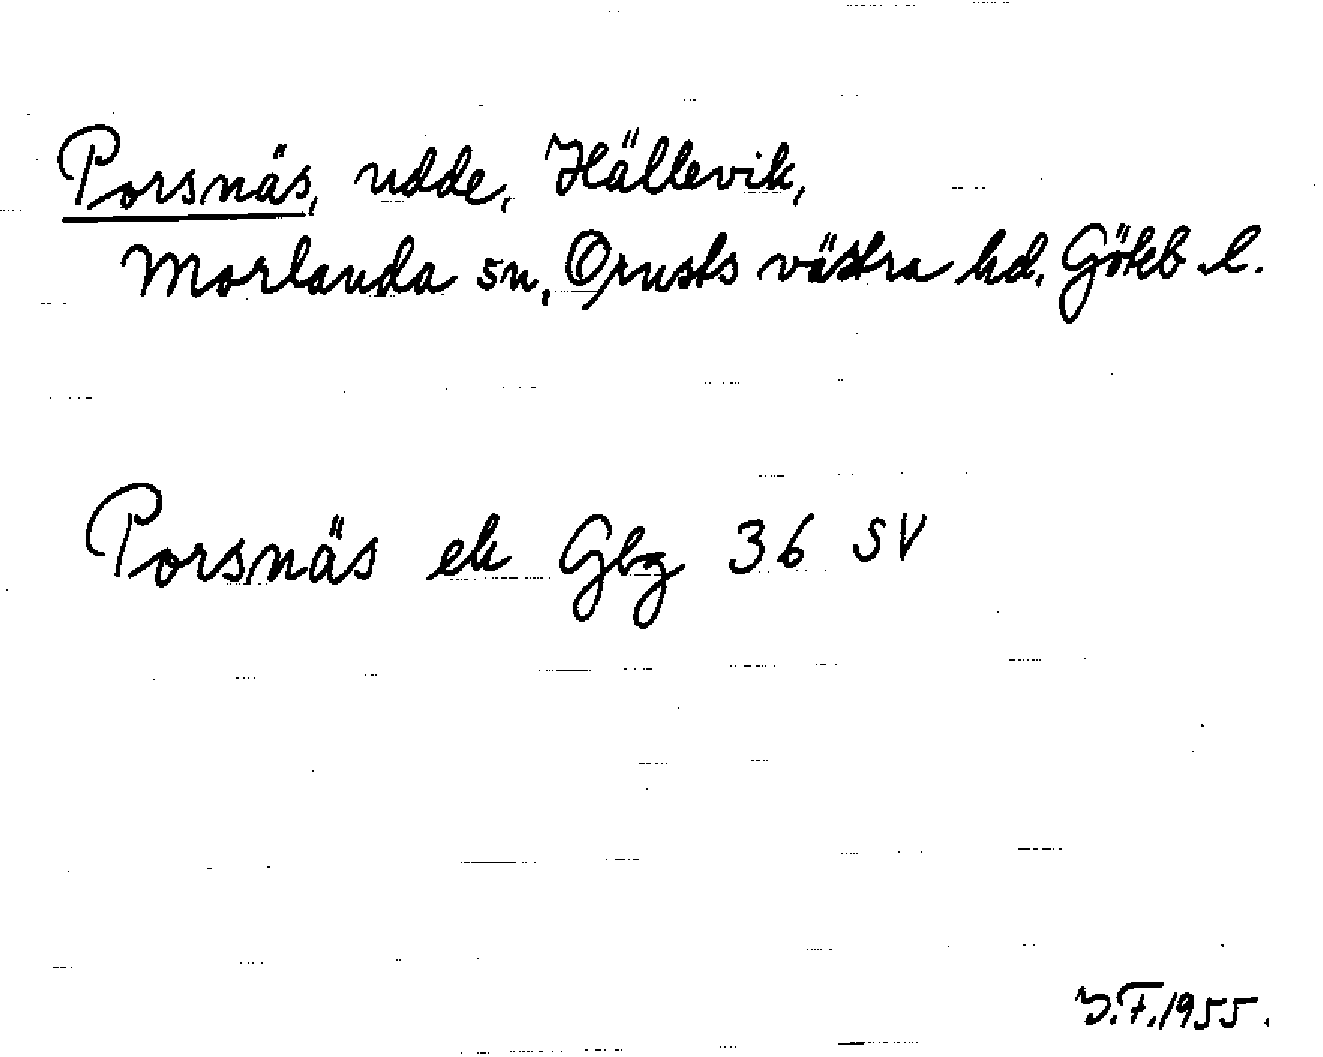 Porsnäs, udde, Hällevik,
Morlanda sn, Orusts västra hd. Göteb. l.
Porsnäs ek Gbg 36 SV
J.F. 1955.